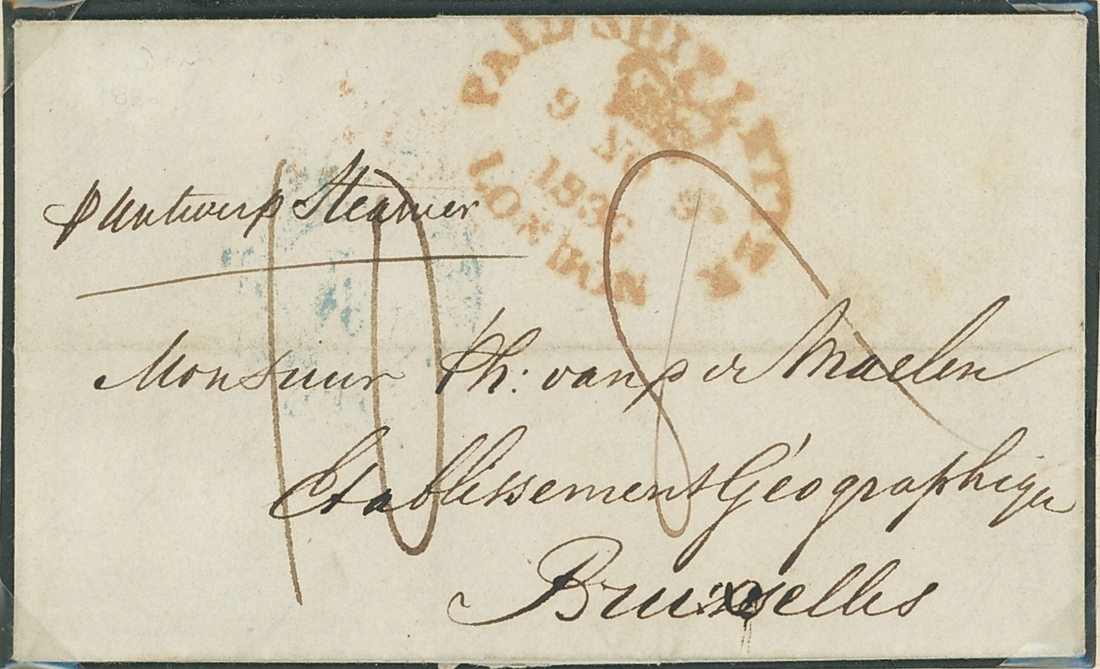 PAID SHIP LETTER
9 NO
183
LONDON
p Antwerp Steamer
10 8
Monsieur Ph: vander Maelen
Etablissement Géographique
Bruxselles